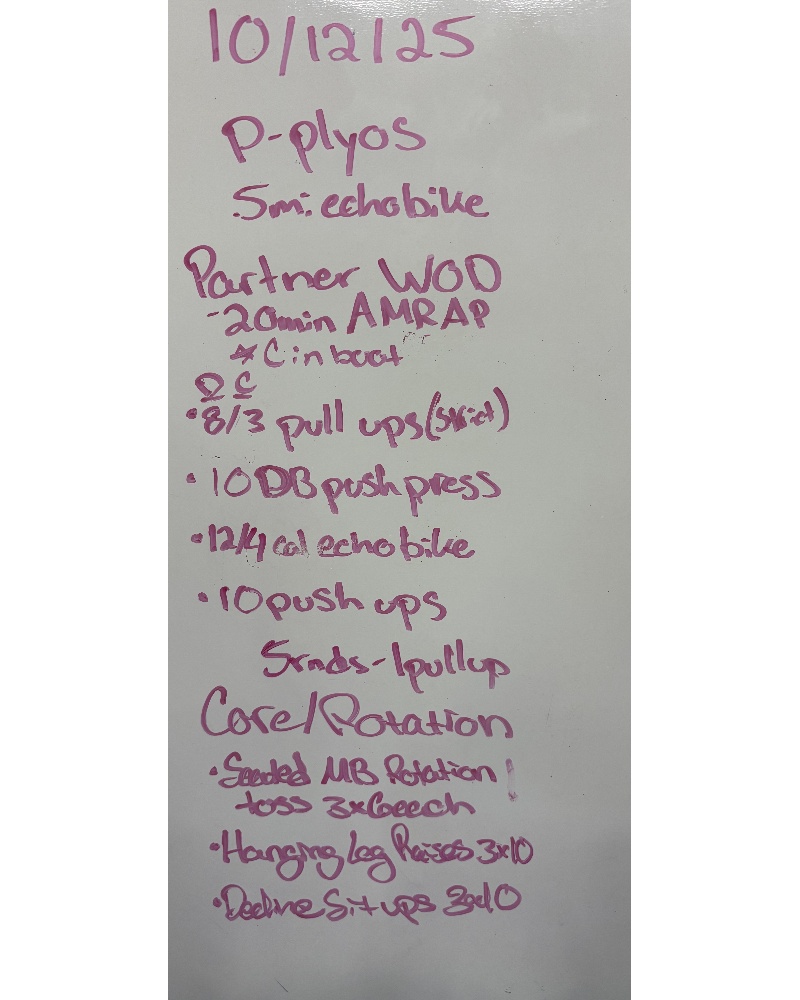 10/12/25
P-plyos
5mi echobike
Partner WOD
-20min AMRAP
* C in boat
D C
• 8/3 pull ups (strict)
• 10 DB push press
• 12/4 cal echo bike
• 10 push ups
5rnds - 1 pull up
Core/Rotation
• Seeded MB Rotation
toss 3x6eech
• Hanging Leg Raises 3x10
• Decline Sit ups 3x10